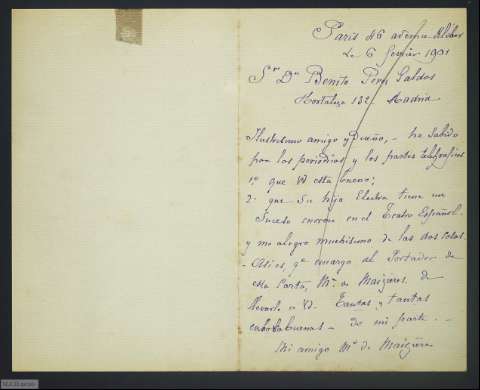 Paris 46 avenue Kléber
Le 6 février 1901
Sr Dn Benito Perez Galdos
Hortaleza 132 Madrid
Ilustrisimo amigo y Dueño, - he sabido
por los periodicos y los partes telegraficos
1º que Vd esta bueno;
2º que Su hija Electra tiene un
Suceso enorme en el Teatro Español.
y me alegro muchisimo de las dos cosas.
- Asi es qe encargo al Portador de
esta Carta, Mr. de Maizères de
llevarle a Vd. Tantas y tantas
enhorabuenas - de mi parte. -
Mi amigo Mr de Maizère